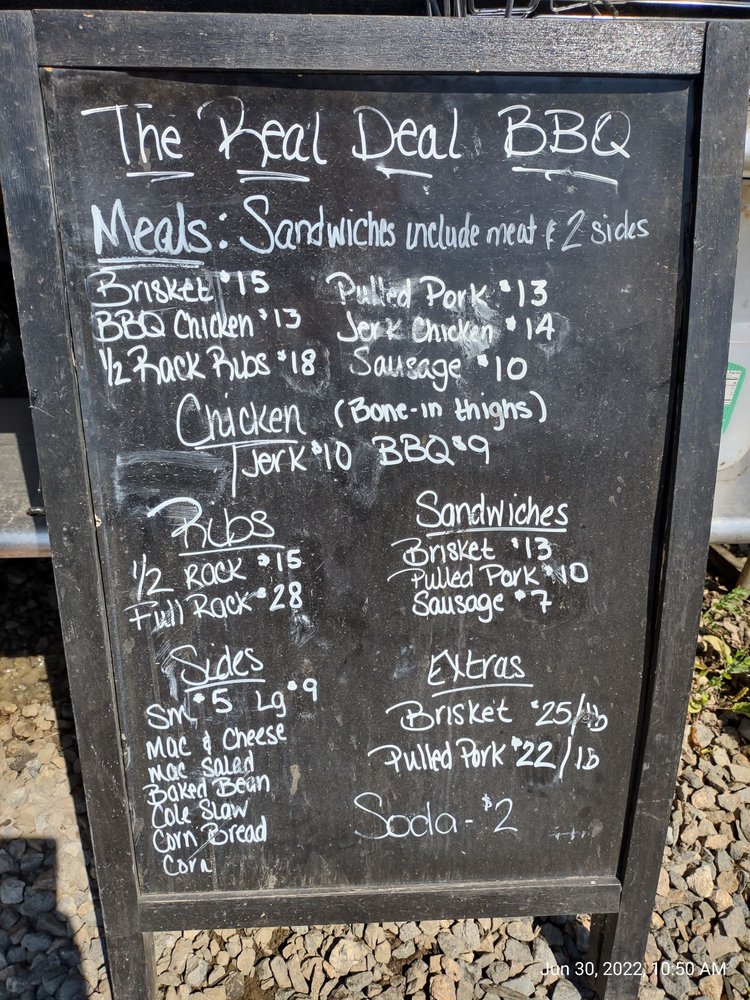 The Real Deal BBQ
Meals: Sandwiches include meat & 2 sides
Brisket $15 Pulled Pork $13
BBQ Chicken $13 Jerk Chicken $14
1/2 Rack Ribs $18 Sausage $10
Chicken (Bone-in thighs)
Jerk $10 BBQ $9
Ribs
1/2 Rack $15
Full Rack $28
Sandwiches
Brisket $13
Pulled Pork $10
Sausage $7
Sides
Sm $5 Lg $9
Mac & Cheese
Mac Salad
Baked Bean
Cole Slaw
Corn Bread
Corn
Extras
Brisket $25/lb
Pulled Pork $22/lb
Soda - $2
Jun 30, 2022, 10:50 AM